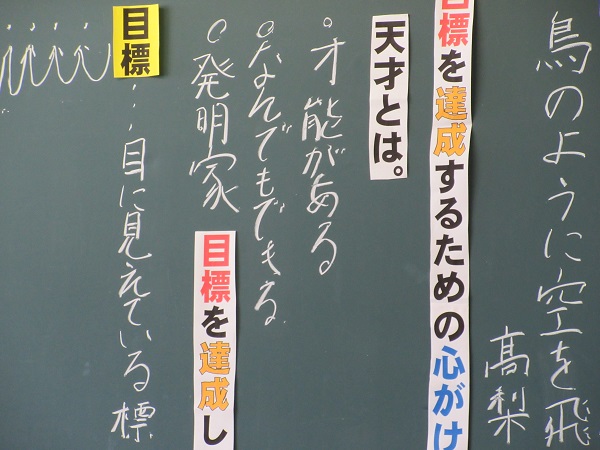 鳥のように空を飛
高梨
目標を達成するための心がけ
天才とは。
○才能がある
○なんでもできる
○発明家
目標を達成し
目標
…目に見えている標